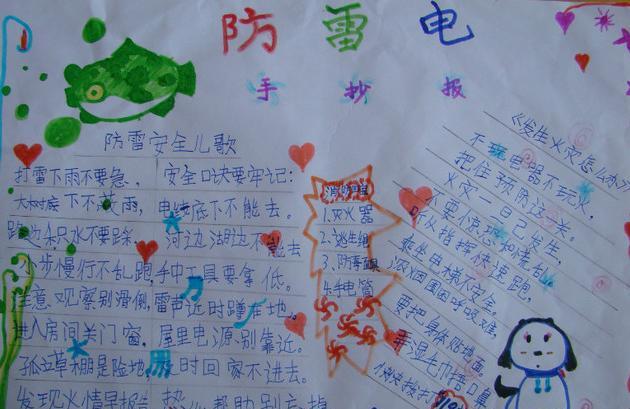 防雷电
手抄报
防雷安全儿歌
打雷下雨不要急、安全口诀要牢记：
大树底下不避雨，电线底下不能去。
路边积水不要踩、河边湖边不能去
小步慢行不乱跑，手中工具要拿低。
注意观察别滑倒，雷声近时蹲在地。
进入房间关门窗，屋里电源别靠近。
孤立草棚是险地，及时回家不进去。
发现火情早报告，帮助别忘掉
1.灭火器
2.逃生绳
3、防毒面具
4.手电筒
《发生火灾怎么办》
不玩电器不玩火，
把住预防这一关。
火灾一旦已发生，
不要惊恐和慌乱
听从指挥快速跑，
乘坐电梯不安全。
浓烟围困呼吸难，
要把身体贴地面，
手湿毛巾捂口鼻